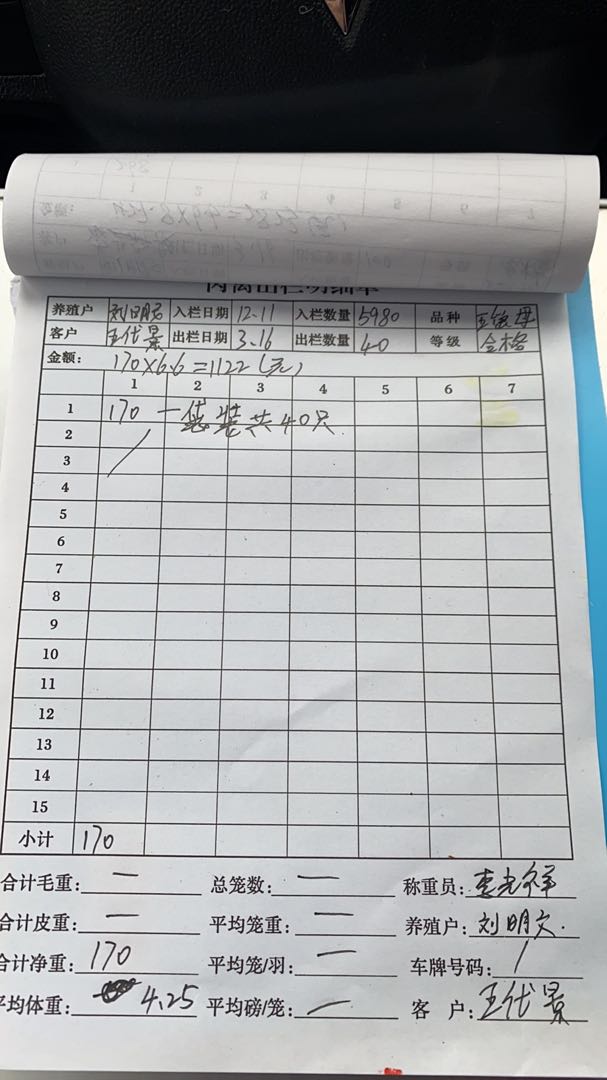 养殖户 刘明文 入栏日期 12.11 入栏数量 5980 品种
客户 王代景 出栏日期 3.16 出栏数量 40 等级 合格
金额: 170×6.6=1122(元)
1 2 3 4 5 6 7
1 170 一袋装共40只
2
3
4
5
6
7
8
9
10
11
12
13
14
15
小计 170
合计毛重: — 总笼数: — 称重员: 李光祥
合计皮重: — 平均笼重: — 养殖户: 刘明文.
合计净重: 170 平均笼/羽: — 车牌号码: /
平均体重: 4.25 平均磅/笼: — 客户: 王代景